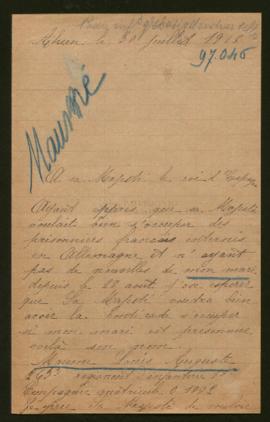 Ahun le 30 juillet 1915
97.046
Maumé
A sa Majesté le roi d'Espagne
Ayant appris que sa Majesté
voulait bien s'occuper des
prisonniers français internés
en Allemagne et n'ayant
pas de nouvelles de mon mari
depuis le 28 août j'ose espérer
que Sa Majesté voudra bien
avoir la bonté de s'occuper
si mon mari est prisonnier
voilà son nom
Louis Auguste
regiment d'infanterie
Compagnie matricule 0 1892
Je prie Sa Majesté de vouloir